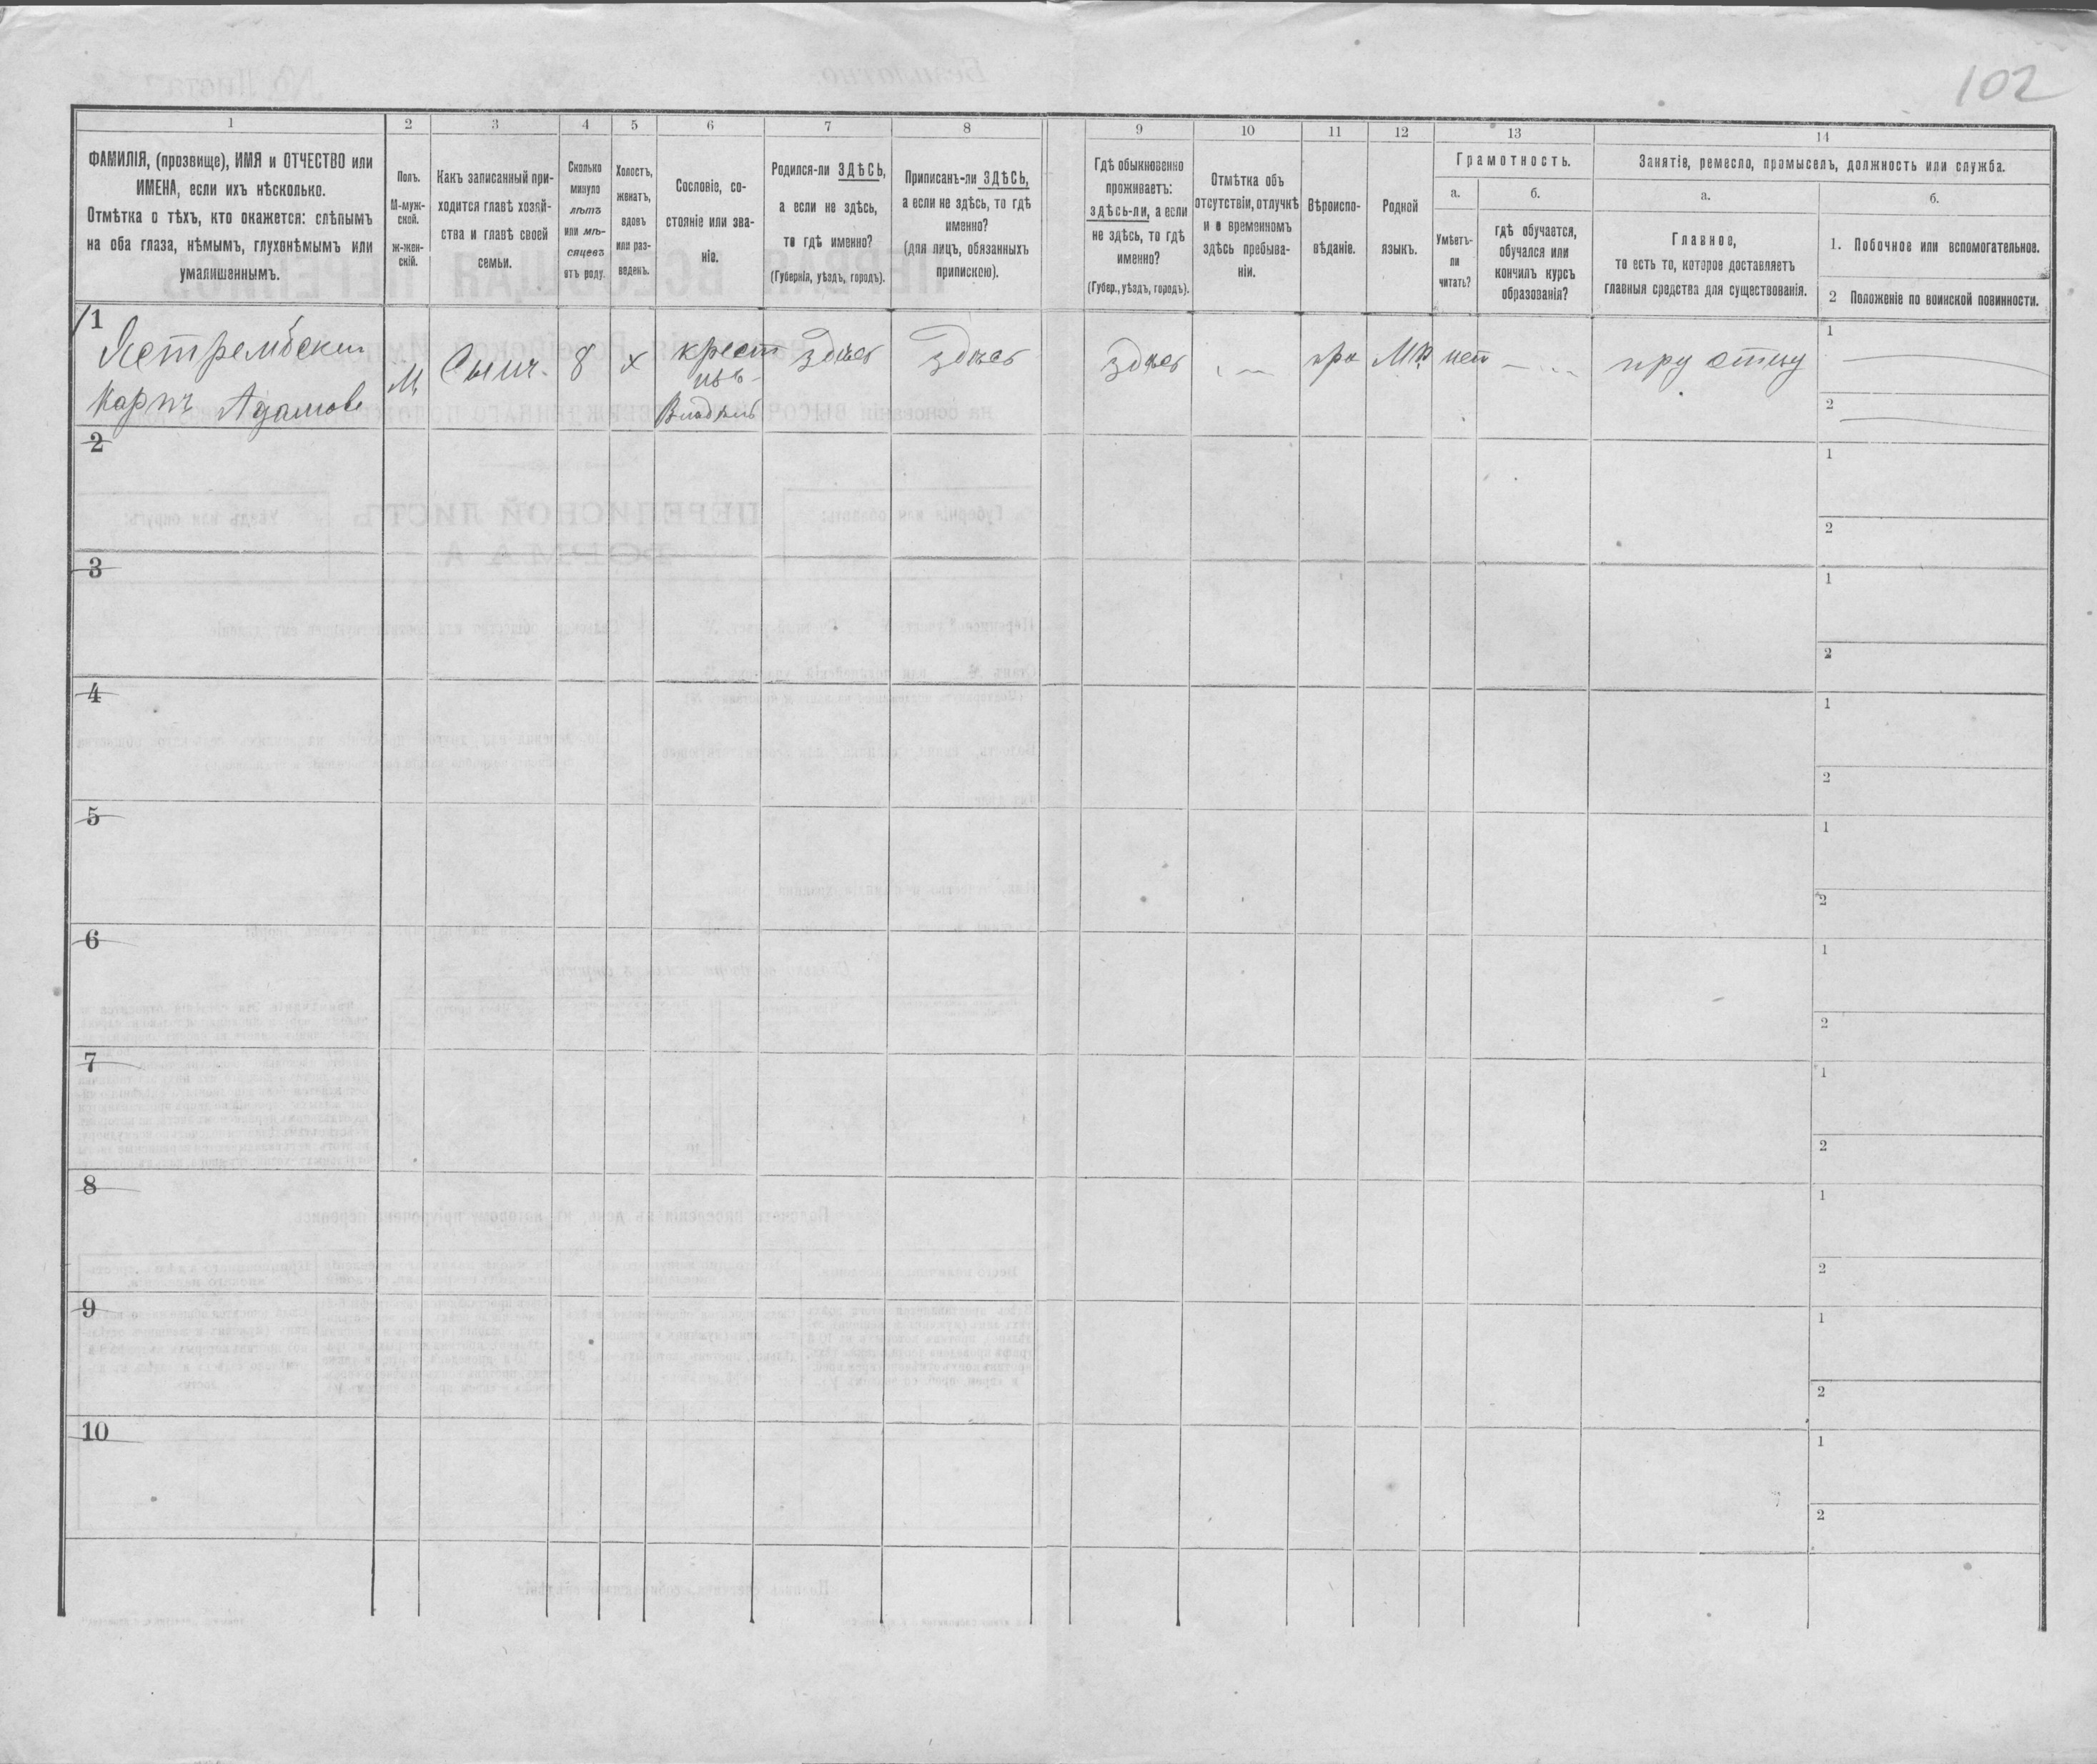 102
1
2
3
4
5
6
7
8
9
10
11
12
13
14
ФАМИЛІЯ, (прозвище), ИМЯ и ОТЧЕСТВО или
ИМЕНА, если ихъ нѣсколько.
Отмѣтка о тѣхъ, кто окажется: слѣпымъ
на оба глаза, нѣмымъ, глухонѣмымъ или
умалишеннымъ.
Полъ.
М-муж-
ской.
Ж-жен-
скій.
Какъ записанный при-
ходится главѣ хозяй-
ства и главѣ своей
семьи.
Сколько
минуло
лѣтъ
или мѣ-
сяцевъ
отъ роду.
Холостъ,
женатъ,
вдовъ
или раз-
веденъ.
Сословіе, со-
стояніе или зва-
ніе.
Родился-ли ЗДѢСЬ,
а если не здѣсь,
то гдѣ именно?
(Губернія, уѣздъ, городъ).
Приписанъ-ли ЗДѢСЬ,
а если не здѣсь, то гдѣ
именно?
(для лицъ, обязанныхъ
припискою).
Гдѣ обыкновенно
проживаетъ:
здѣсь-ли, а если
не здѣсь, то гдѣ
именно?
(Губер., уѣздъ, городъ).
Отмѣтка объ
отсутствіи, отлучкѣ
и о временномъ
здѣсь пребыва-
ніи.
Вѣроиспо-
вѣданіе.
Родной
языкъ.
Грамотность.
а.
Умѣетъ-
ли
читать?
б.
гдѣ обучается,
обучался или
кончилъ курсъ
образованія?
Занятіе, ремесло, промыселъ, должность или служба.
а.
Главное,
то есть то, которое доставляетъ
главныя средства для существованія.
б.
1. Побочное или вспомогательное.
2 Положеніе по воинской повинности.
1
Ястрембскій
Карпъ Адамовъ
М
Сынъ
8
х
крест
изъ
Владѣль
здѣсь
здѣсь
здѣсь
пра
МР
нет
при отцу
1
2
2
1
2
3
1
2
4
1
2
5
1
2
6
1
2
7
1
2
8
1
2
9
1
2
10
1
2